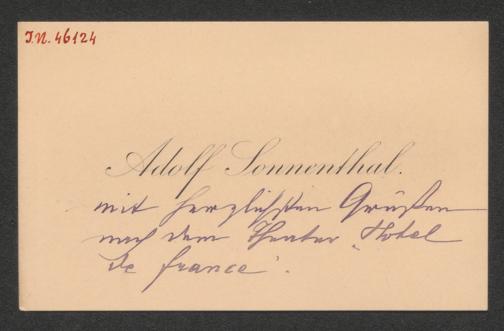 J.N. 46124
Adolf Sonnenthal.
mit herzlichsten Grüßen
nach dem Theater „Hotel
de france".